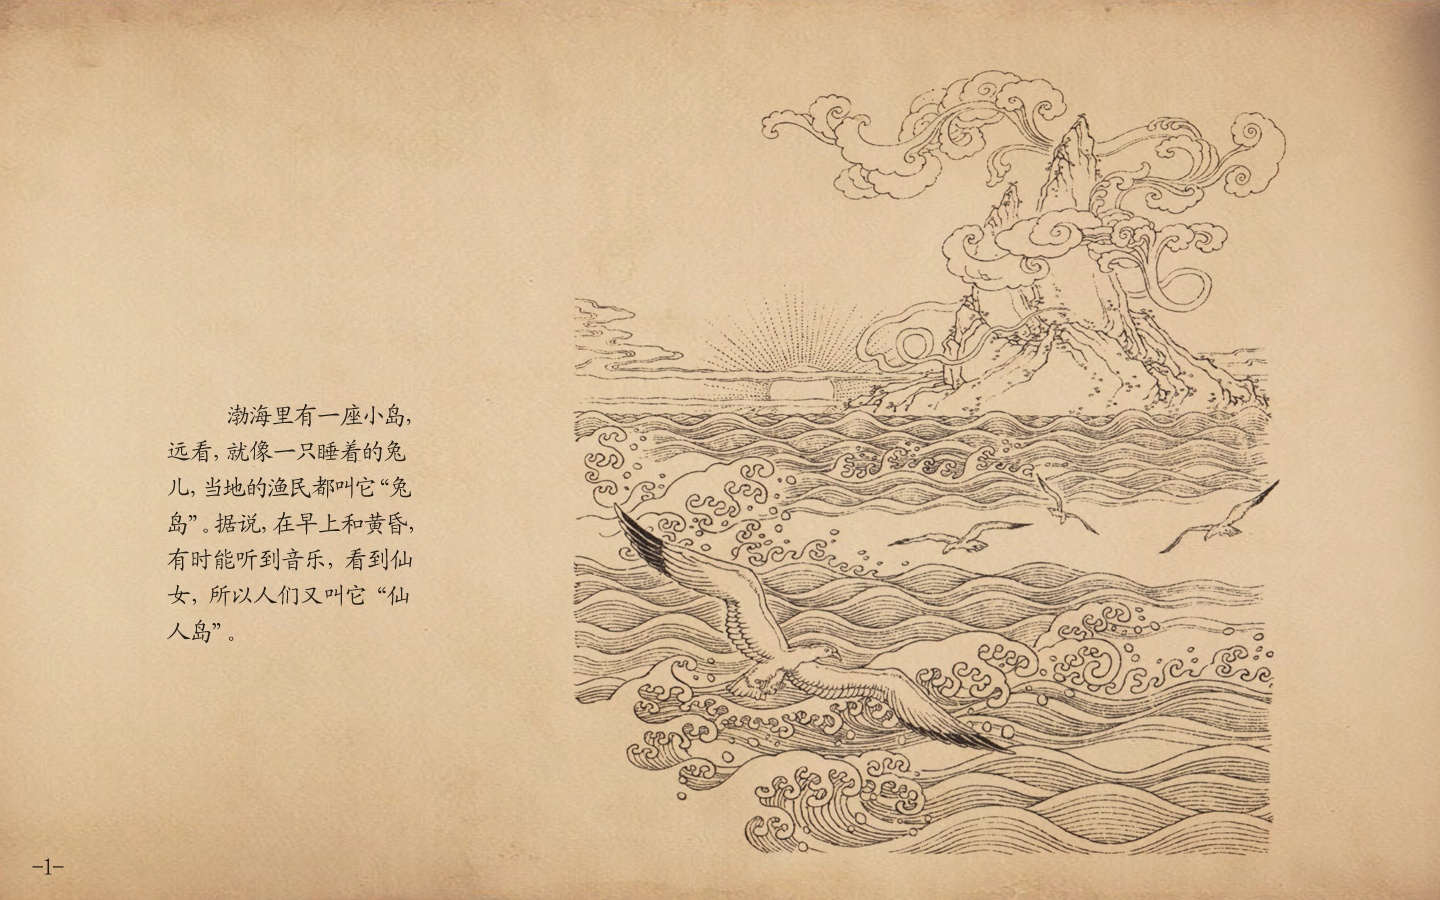 渤海里有一座小岛,
远看, 就像一只睡着的兔
儿, 当地的渔民都叫它“兔
岛”。据说, 在早上和黄昏,
有时能听到音乐, 看到仙
女, 所以人们又叫它 “仙
人岛”。
-1-